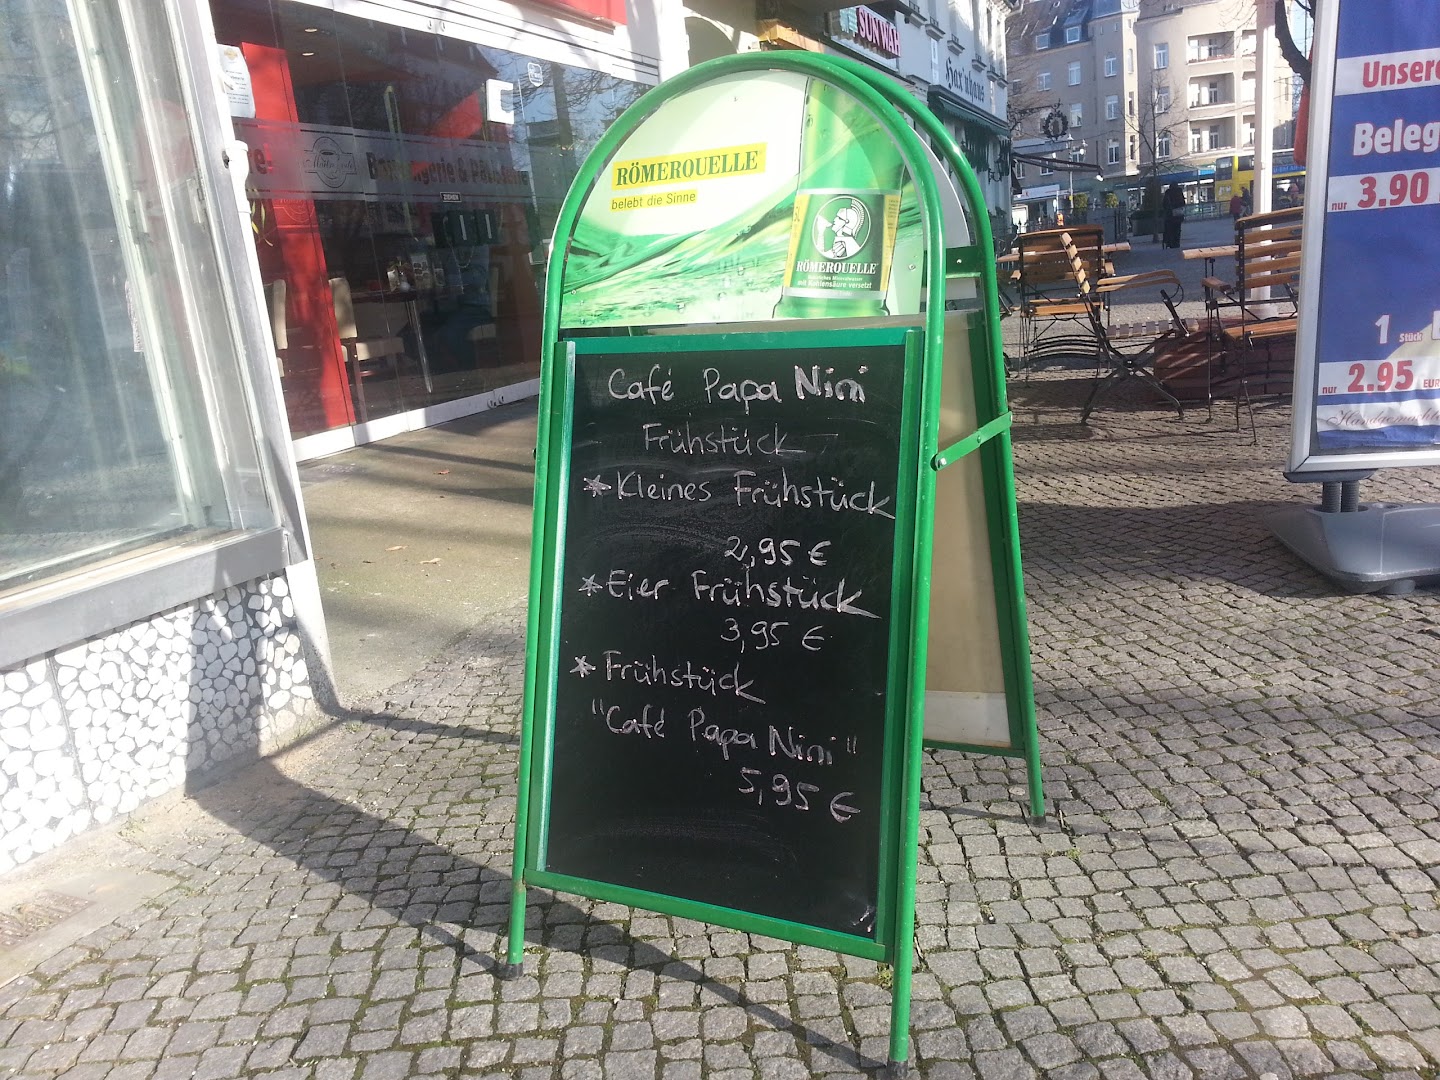 SUN WAH
Hax'nhaus
RÖMERQUELLE
belebt die Sinne
RÖMERQUELLE
mit Kohlensäure versetzt
Café Papa Nini
Frühstück
*Kleines Frühstück
2,95 €
*Eier Frühstück
3,95 €
*Frühstück
"Café Papa Nini"
5,95 €
Unsere
Beleg
nur 3.90
1 Stück
nur 2.95 EUR
ZIEHEN